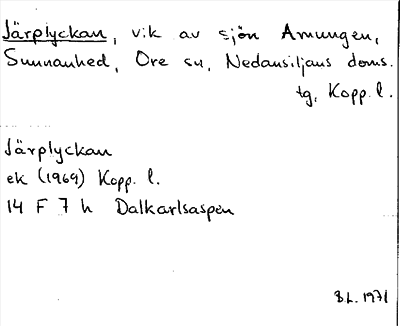 Järplyckan, vik av sjön Amungen,
Sunnanhed, Ore sn, Nedansiljans doms.
tg, Kopp. l.
Järplyckan
ek (1969) Kopp. l.
14 F 7 h Dalkarlsaspen
B.L. 1971